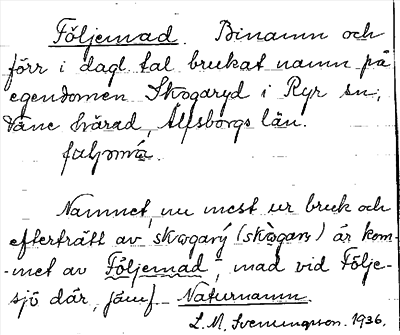 Följemad. Binamn och
förr i dagl tal brukat namn på
egendomen Skogaryd i Ryr sn,
Väne härad, Älfsborgs län.
Namnet, nu mest ur bruk och
efterträtt av skogarý (skògarỳ) är kom-
-met av Följemad, mad vid Följe-
sjö där, jämf Naturnamn.
L. M. Svenungsson. 1936.